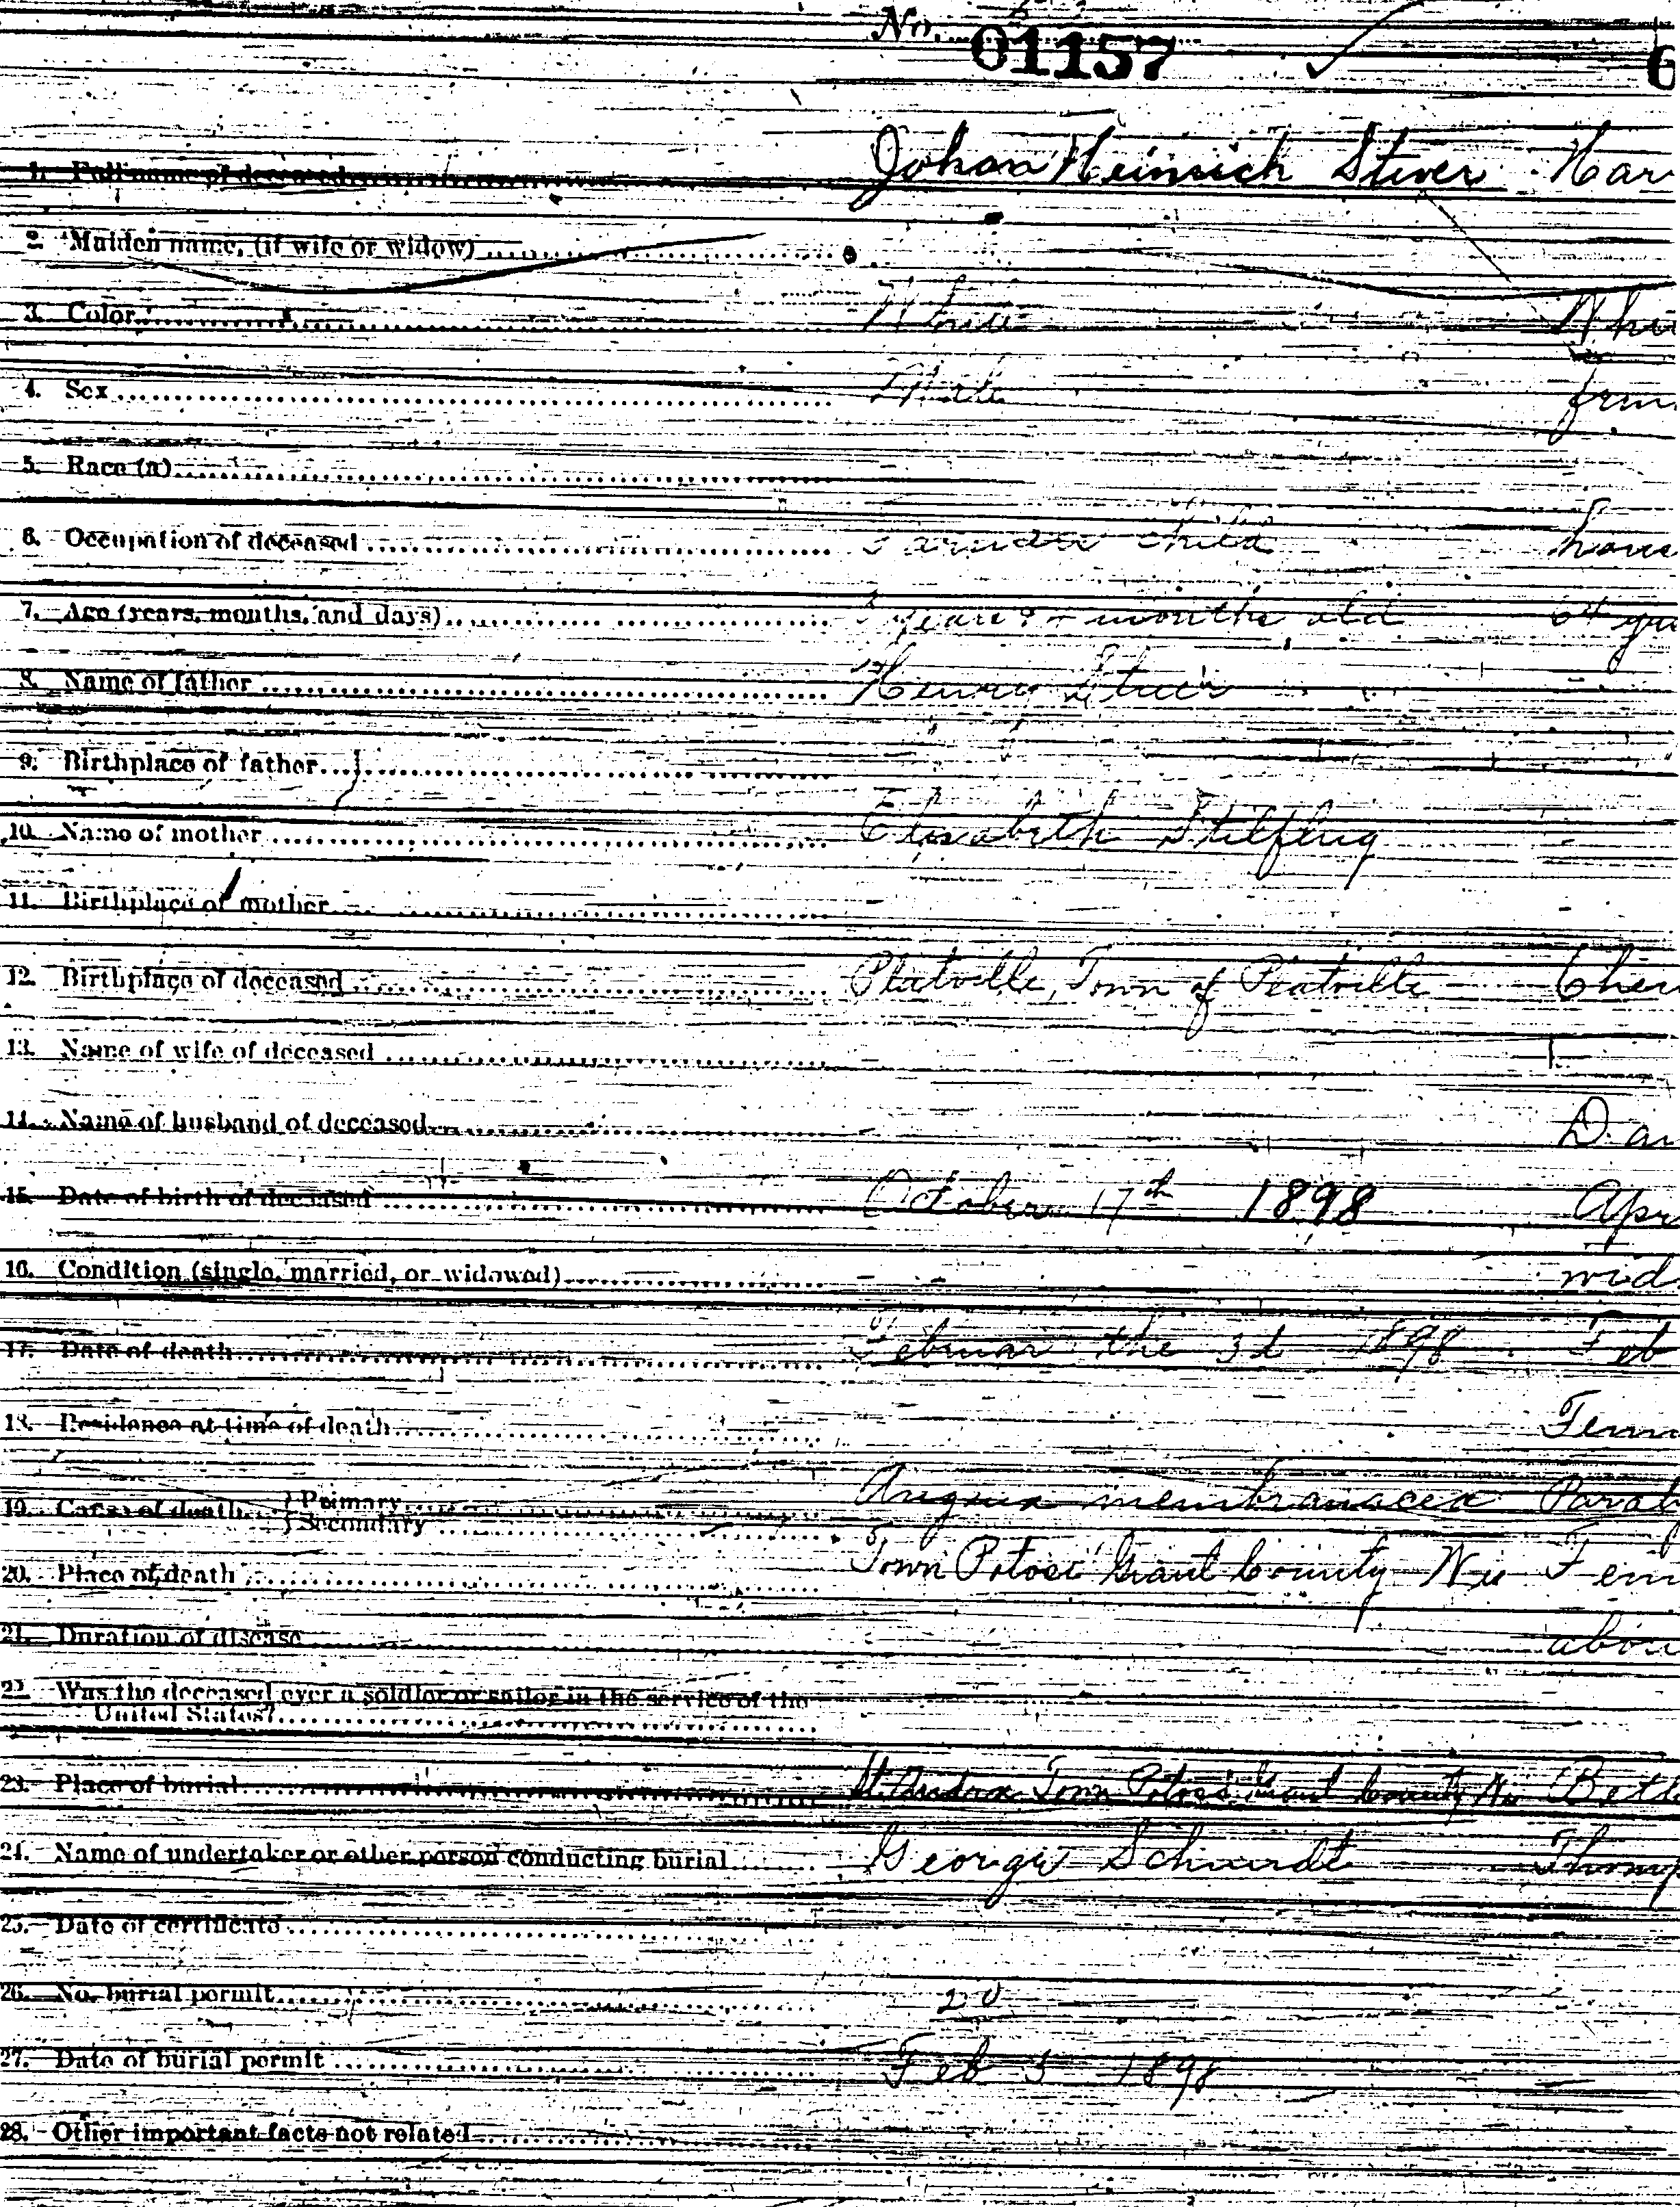 No. 01157
1. Full name of deceased Johan Heinrich Stuer Har
2. Maiden name, (if wife or widow)
3. Color White Whi
4. Sex Male fem
5. Race (a)
6. Occupation of deceased child house
7. Age (years, months, and days) 3 years months old 64 yea
8. Name of father Henry Stuer
9. Birthplace of father
10. Name of mother Elisabeth
11. Birthplace of mother
12. Birthplace of deceased Platville, Town of Platville
13. Name of wife of deceased
14. Name of husband of deceased
15. Date of birth of deceased October 17th 1898 Apr
16. Condition (single, married, or widowed) wid
17. Date of death Februar the 3d 1898 Feb
18. Residence at time of death
19. Cause of death Primary Angina membranacea Paraly
Secondary
20. Place of death Town Potosi Grant County Wis
21. Duration of disease abou
22. Was the deceased ever a soldier or sailor in the service of the
United States?
23. Place of burial Town Potosi Grant County Wis Beth
24. Name of undertaker or other person conducting burial George
25. Date of certificate
26. No. burial permit 20
27. Date of burial permit Feb 5 1898
28. Other important facts not related